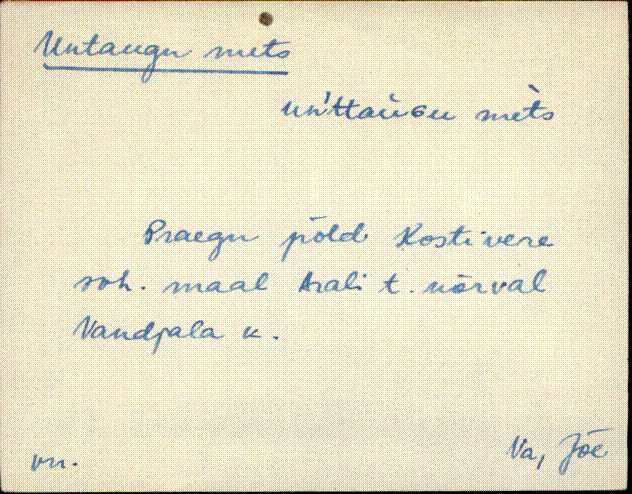 Untaugu mets
un'ttaùGu mèts
Praegu põld Kostivere
soh. maal Arali t. kõrval
Vandjala k.
vn.
Va, Jõe